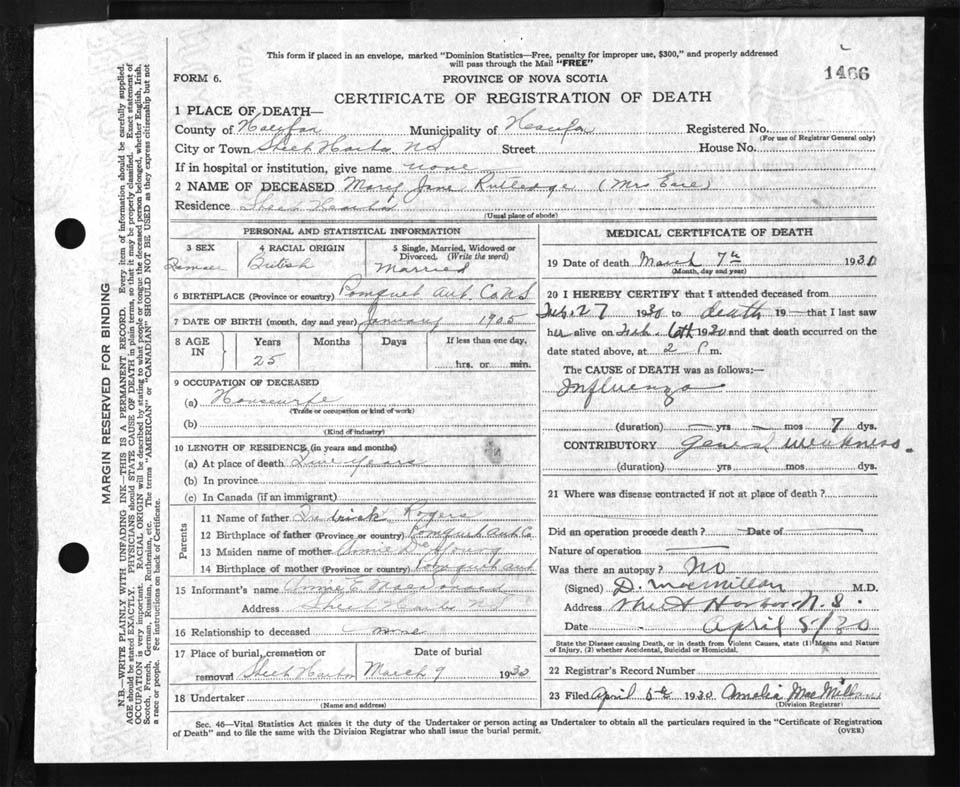 This form if placed in an envelope, marked "Dominion Statistics—Free, penalty for improper use, $300," and properly addressed
will pass through the Mail "FREE"
1466
FORM 6.
PROVINCE OF NOVA SCOTIA
CERTIFICATE OF REGISTRATION OF DEATH
MARGIN RESERVED FOR BINDING
N.B.—WRITE PLAINLY WITH UNFADING INK—THIS IS A PERMANENT RECORD. Every item of information should be carefully supplied.
AGE should be stated EXACTLY. PHYSICIANS should STATE CAUSE OF DEATH in plain terms, so that it may be properly classified. Exact statement of
OCCUPATION is very important. RACIAL ORIGIN will be described by stating to what people or tongue the deceased person belonged, whether English, Irish,
Scotch, French, German, Russian, Ruthenian, etc. The terms "AMERICAN" or "CANADIAN" SHOULD NOT BE USED as they express citizenship but not
a race or people. See instructions on back of Certificate.
1 PLACE OF DEATH—
County of Halifax Municipality of Registered No.
(For use of Registrar General only)
City or Town Sheet Harbor NS Street House No.
If in hospital or institution, give name none
2 NAME OF DECEASED Mary Jane Rutledge (Mrs
Residence Sheet Harbor
(Usual place of abode)
PERSONAL AND STATISTICAL INFORMATION
3 SEX 4 RACIAL ORIGIN 5 Single, Married, Widowed or
Divorced. (Write the word)
British Married
6 BIRTHPLACE (Province or country) Pomquet Ant. Co NS
7 DATE OF BIRTH (month, day and year) January 1905
8 AGE IN Years Months Days If less than one day,
25 hrs. or min.
9 OCCUPATION OF DECEASED
(a) Housewife
(Trade or occupation or kind of work)
(b)
(Kind of industry)
10 LENGTH OF RESIDENCE (in years and months)
(a) At place of death years
(b) In province
(c) In Canada (if an immigrant)
Parents
11 Name of father Rogers
12 Birthplace of father (Province or country) Pomquet Ant Co
13 Maiden name of mother Annie De Young
14 Birthplace of mother (Province or country) Pomquet Ant
15 Informant's name Annie E MacDonald
Address Sheet Harbor NS
16 Relationship to deceased none
17 Place of burial, cremation or Date of burial
removal Sheet Harbor March 9 1930
18 Undertaker
(Name and address)
MEDICAL CERTIFICATE OF DEATH
19 Date of death March 7th 1930
(Month, day and year)
20 I HEREBY CERTIFY that I attended deceased from
27 1930 to death 19 — that I last saw
her alive on 6th 1930 and that death occurred on
date stated above, at 2 P m.
The CAUSE of DEATH was as follows:—
Influenza
(duration) — yrs — mos 7 dys.
CONTRIBUTORY general weakness
(duration) yrs mos dys.
21 Where was disease contracted if not at place of death?
Did an operation precede death? — Date of
Nature of operation —
Was there an autopsy? No
(Signed) D. MacMillan M.D.
Address Sheet Harbor N.S.
Date April 5/30
State the Disease causing Death, or in death from Violent Causes, state (1) Means and Nature
of Injury, (2) whether Accidental, Suicidal or Homicidal.
22 Registrar's Record Number
23 Filed April 5th 1930 Amelia MacMillan
(Division Registrar)
Sec. 46—Vital Statistics Act makes it the duty of the Undertaker or person acting as Undertaker to obtain all the particulars required in the "Certificate of Registration
of Death" and to file the same with the Division Registrar who shall issue the burial permit.
(OVER)